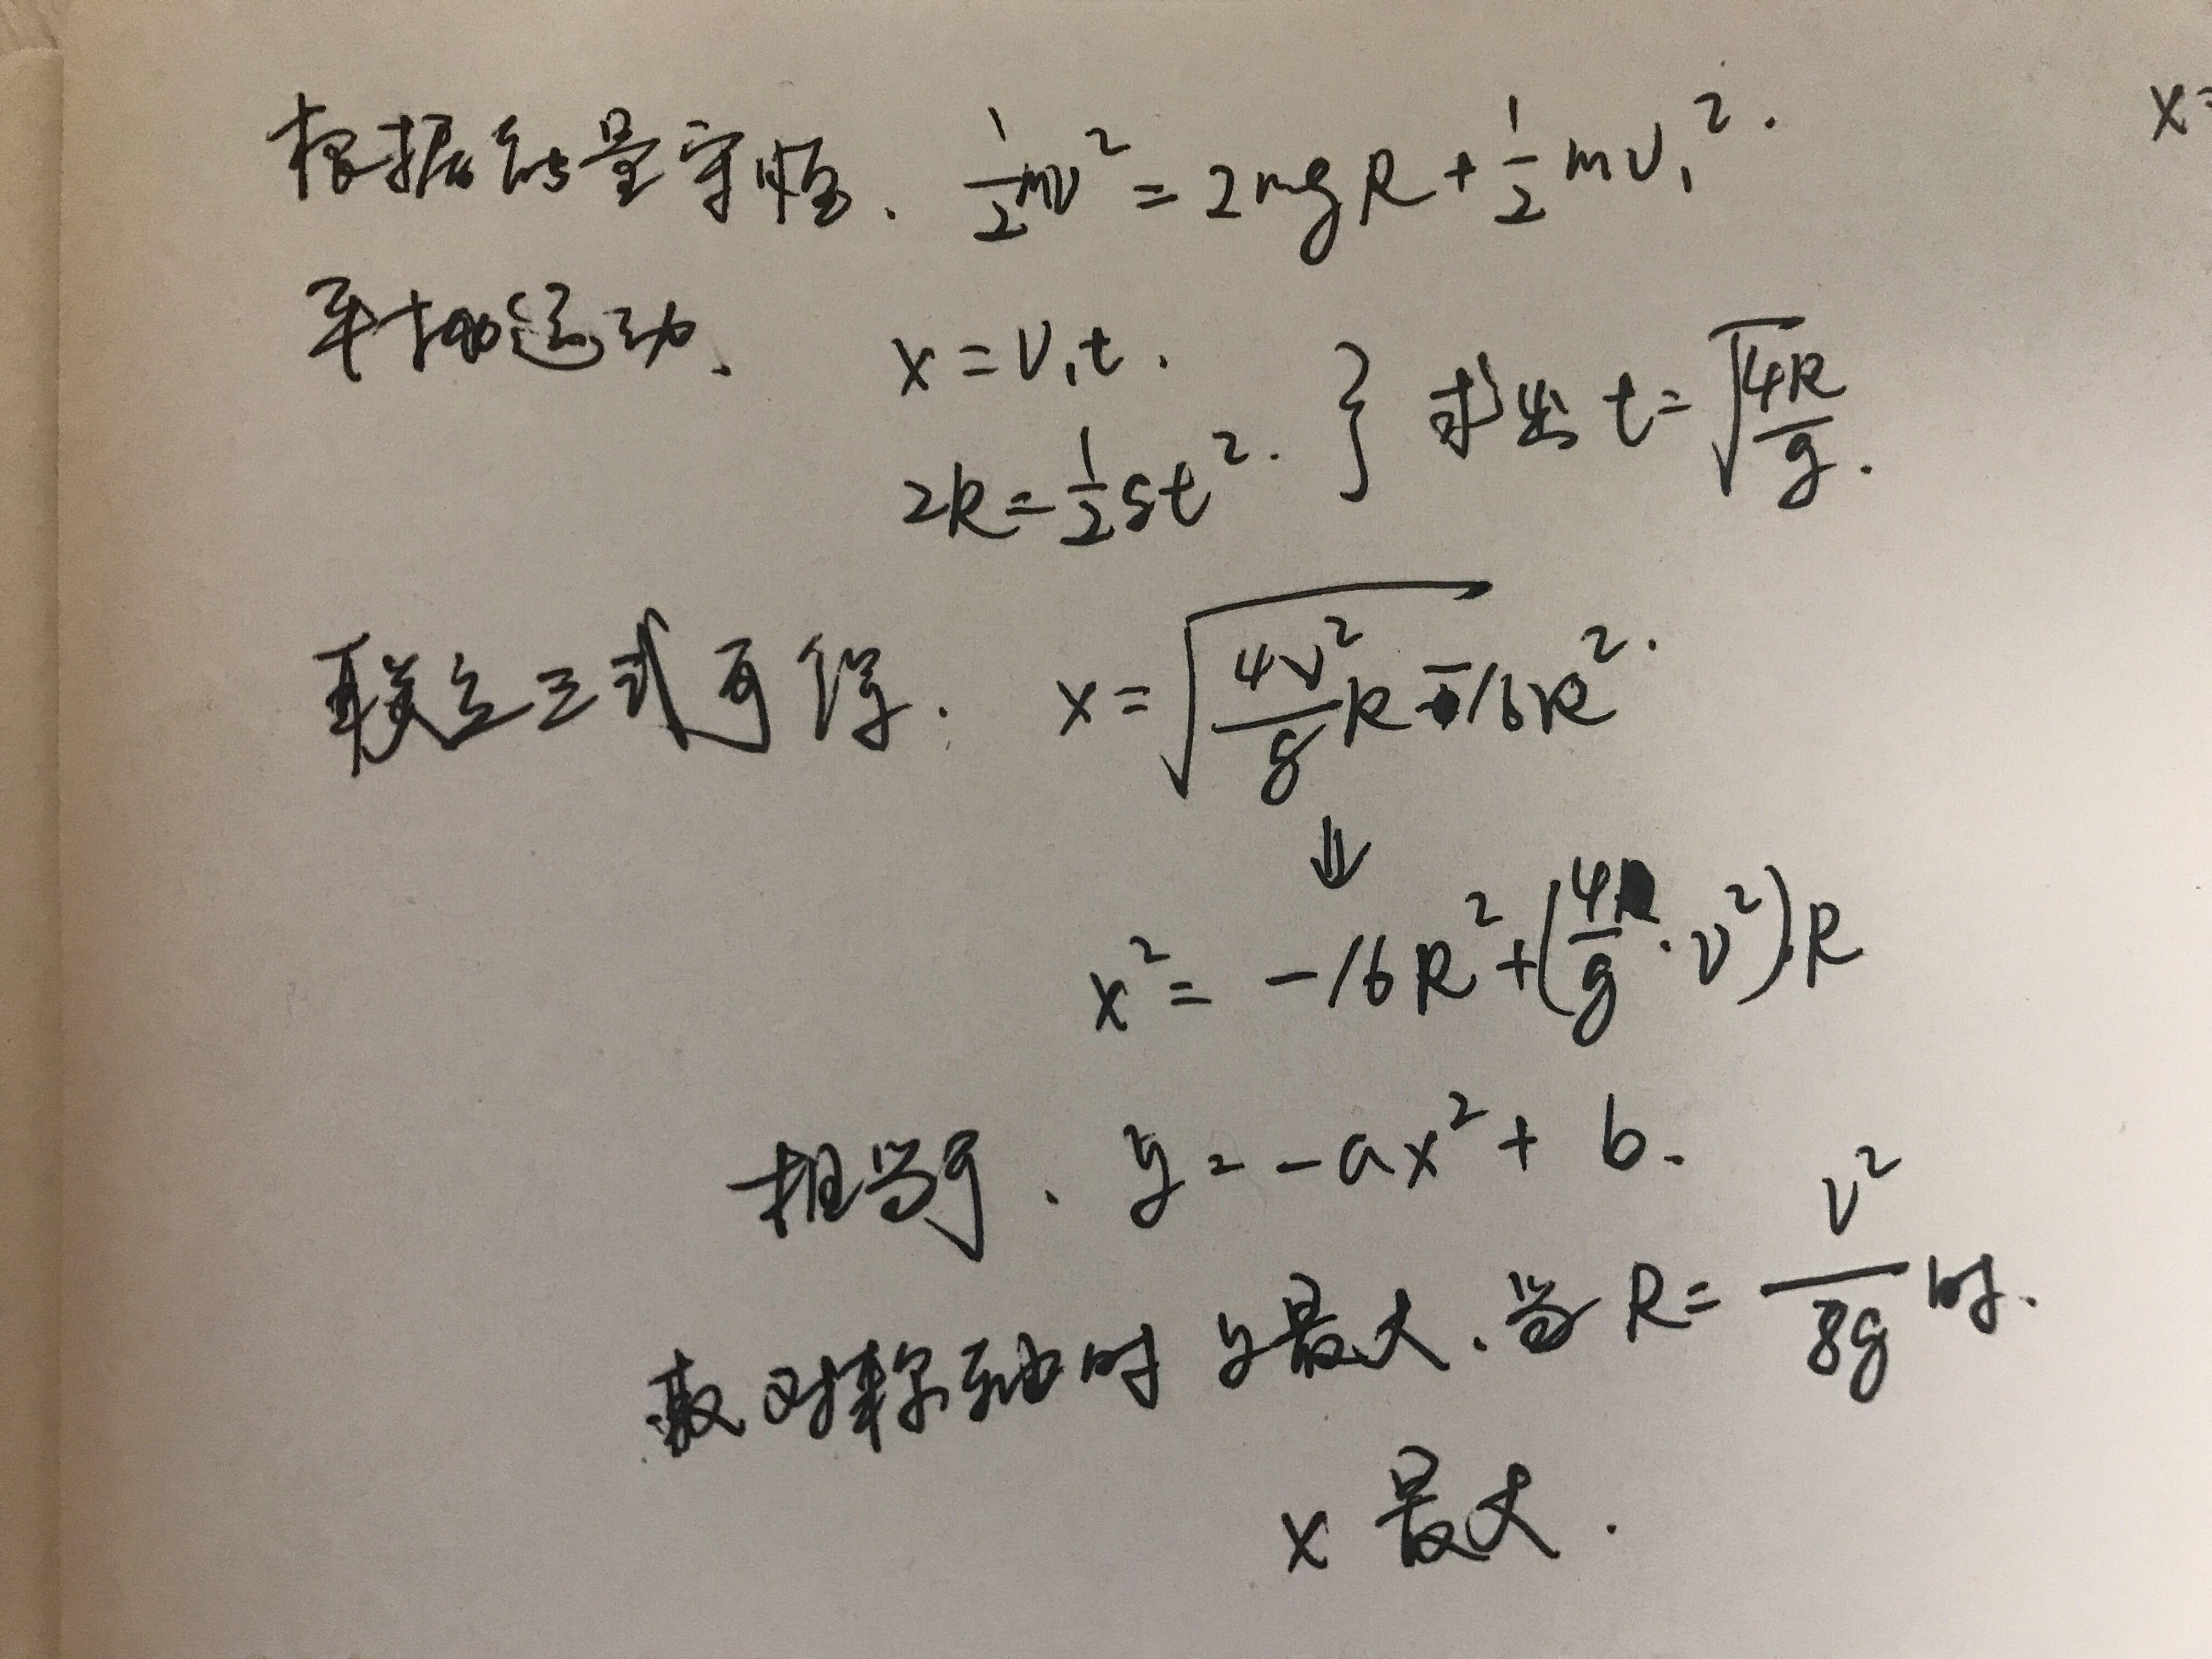 根据能量守恒、½mv² = 2mgR + ½mv₁².
x=
平抛运动、 x = v₁t.
2R = ½gt². } 求出 t = √(4R/g).
联立三式可得. x = √(4v²/g R - 16R²).
⇓
x² = -16R² + (4/g · v²)·R
相当于、y = -ax² + b.
取对称轴时 y最大. 当 R = v²/8g 时.
x 最大.